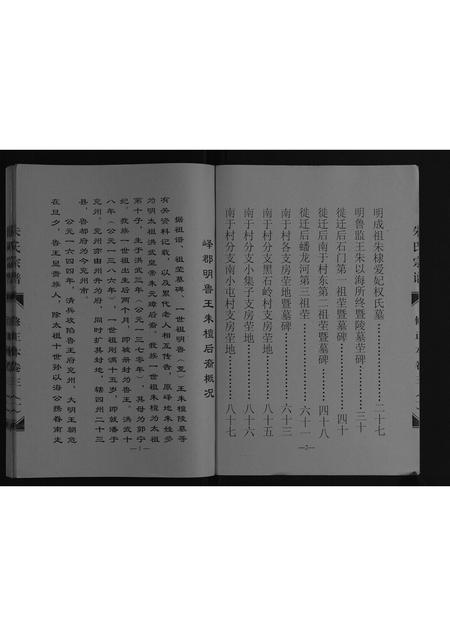 明成祖朱棣爱妃权氏墓……………二十七
明鲁监王朱以海所终暨陵墓茔碑……三十
徙迁后石门第一祖茔暨墓碑…………四十
徙迁后南于村东第二祖茔暨墓碑……四十八
徙迁后蟠龙河第三祖茔………………六十一
南于村各支房茔地暨墓碑……………六十三
南于村分支黑石岭村支房茔地………八十五
南于村分支小集子支房茔地…………八十六
南于村分支南小屯村支房茔地………八十七
—2—
峄郡明鲁王朱檀后裔概况
据祖谱、祖茔墓碑、一世祖明鲁（荒）王朱檀陵墓等
有关资料记载，以及累代老人相互传告，原峄地朱姓多
为明太祖洪武皇帝朱元璋后裔。我族一世祖朱檀为太祖
第十子，生于洪武三年（公元一三七零年），其母为郭宁
妃。我族一世祖出生后两个月，即被册封为鲁王。洪武十
八年（公元一三八六年）一世祖刚满十五岁，即就藩于
兖州。兖州亦由州升为府，同时扩其封地，辖四州二十三
县，鲁都府为今兖州市。
公元一六四四年，清兵攻陷鲁王府兖州，大明王朝危
在旦夕，鲁王皇裔族人，除太祖十世孙以海公携眷南走
—1—
朱氏宗谱
卷三